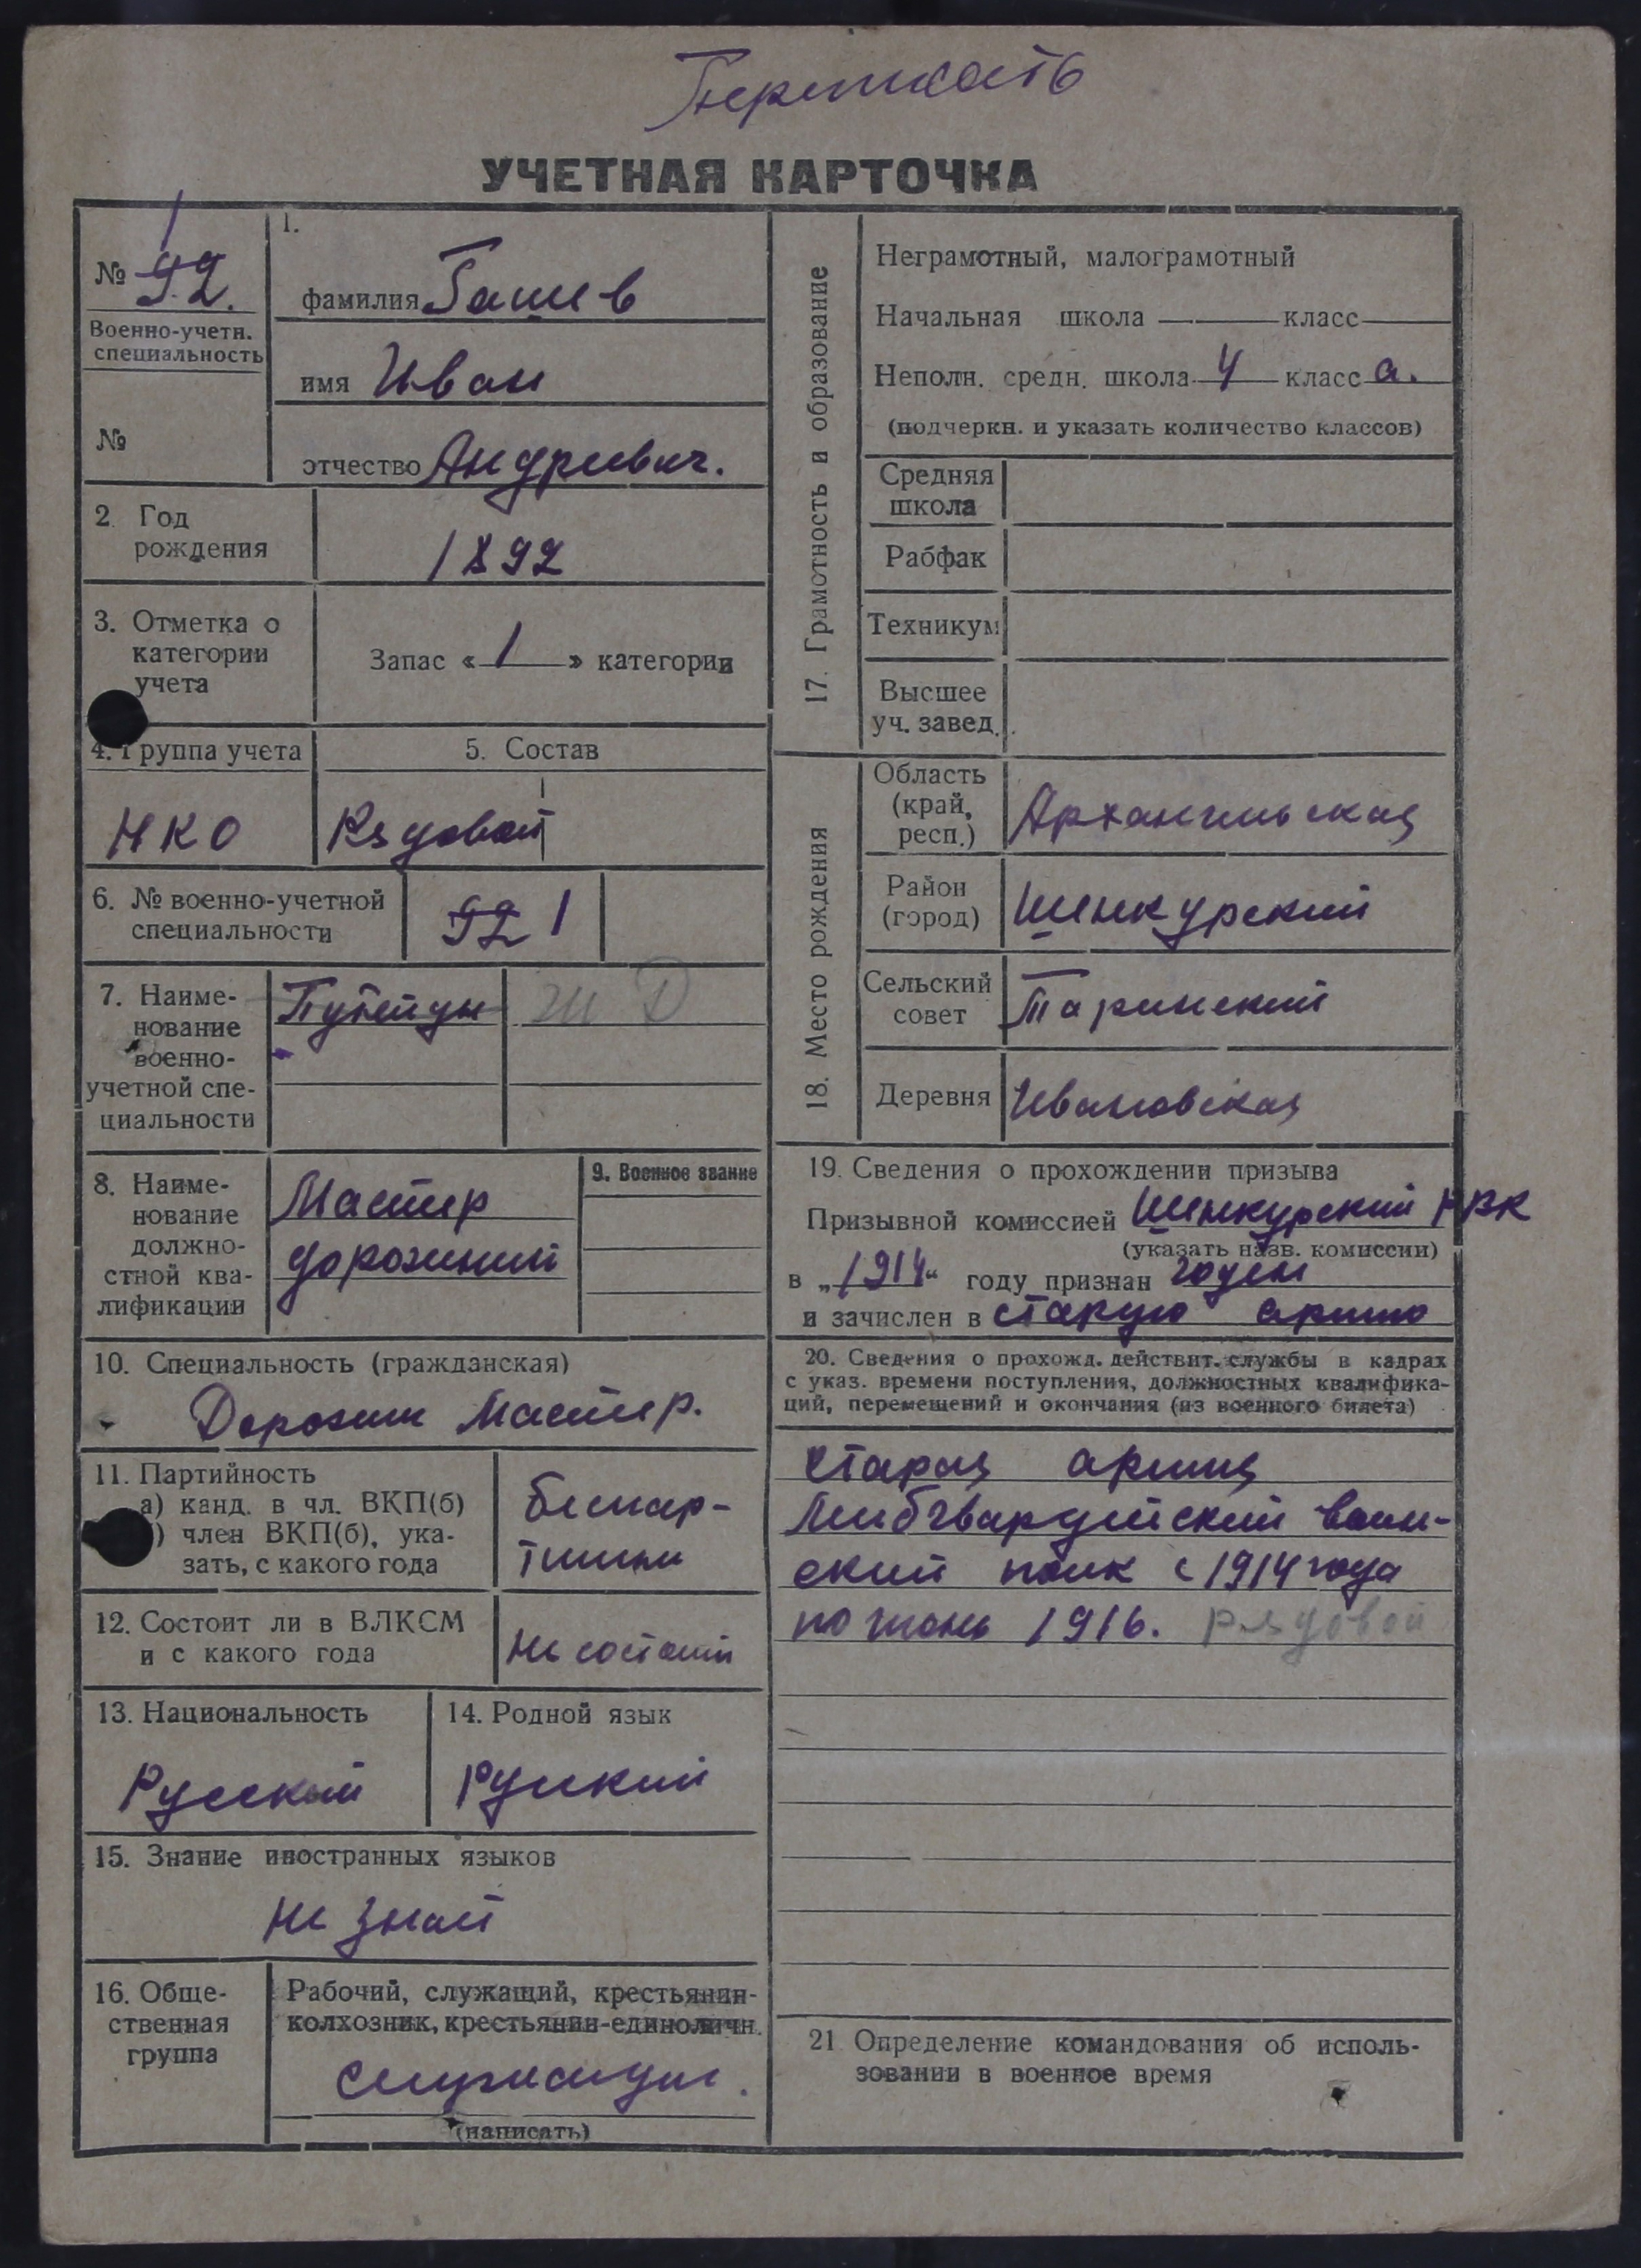 УЧЕТНАЯ КАРТОЧКА
1
№ 92.
Военно-учетн.
специальность
№
1.
фамилия Гашев
имя Иван
отчество Андреевич.
2. Год
рождения
1892
3. Отметка о
категории
учета
Запас « 1 » категории
4. Группа учета
НКО
5. Состав
Рядовой
6. № военно-учетной
специальности
92 1
7. Наиме-
нование
военно-
учетной спе-
циальности
Путейцы
ЖД
8. Наиме-
нование
должно-
стной ква-
лификации
Мастер
дорожний
9. Военное звание
10. Специальность (гражданская)
Дорожн Мастер.
11. Партийность
а) канд. в чл. ВКП(б)
) член ВКП(б), ука-
зать, с какого года
беспар-
тийный
12. Состоит ли в ВЛКСМ
и с какого года
Не состоит
13. Национальность
Русский
14. Родной язык
Русский
15. Знание иностранных языков
Не знает
16. Обще-
ственная
группа
Рабочий, служащий, крестьянин-
колхозник, крестьянин-единоличн.
служащий.
(написать)
17. Грамотность и образование
Неграмотный, малограмотный
Начальная школа класс
Неполн. средн. школа 4 класс а.
(подчеркн. и указать количество классов)
Средняя
школа
Рабфак
Техникум
Высшее
уч. завед.
18. Место рождения
Область
(край,
респ.)
Архангельская
Район
(город)
Шенкурский
Сельский
совет
Таринский
Деревня
Ивановская
19. Сведения о прохождении призыва
Призывной комиссией Шенкурский РВК
(указать назв. комиссии)
в „1914“ году признан годен
и зачислен в старую армию
20. Сведения о прохожд. действит. службы в кадрах
с указ. времени поступления, должностных квалифика-
ций, перемещений и окончания (из военного билета)
Старая армия
Лейбгвардейский воин-
ский полк с 1914 года
по июнь 1916. рядовой
21 Определение командования об исполь-
зовании в военное время